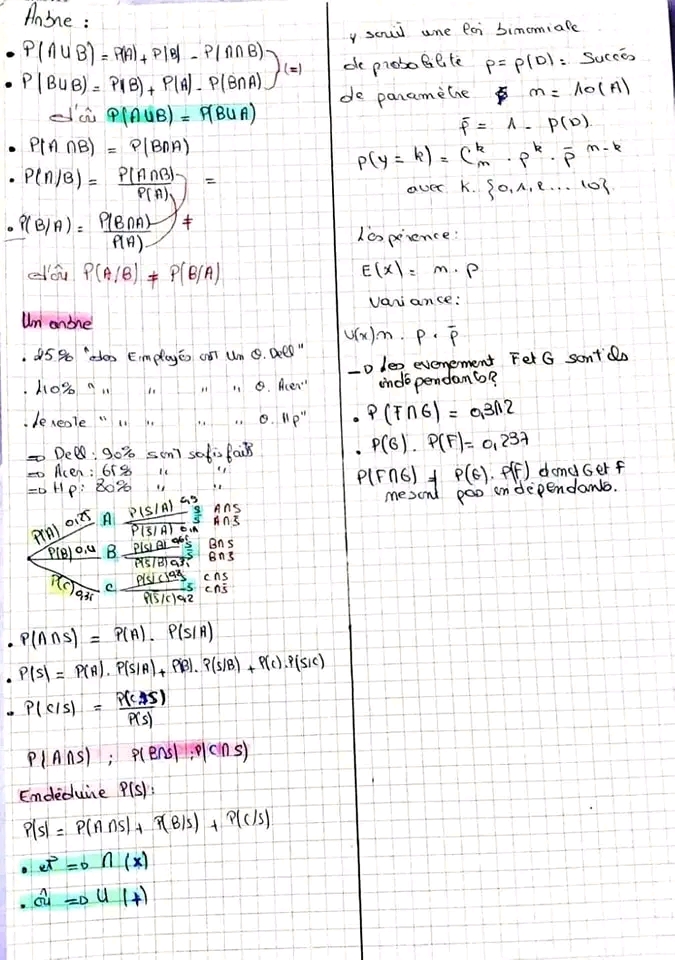 Arbre :
• P(A∪B) = P(A) + P(B) - P(A∩B)
• P(B∪B) = P(B) + P(A) - P(B∩A) (=)
d'où P(A∪B) = P(B∪A)
• P(A∩B) = P(B∩A)
• P(A/B) = P(A∩B) / P(A) =
• P(B/A) = P(B∩A) / P(A) ≠
d'où P(A/B) ≠ P(B/A)
Un arbre
• 25% "des Employés ont Un O. Dell"
• 40% " " " " " O. Acer"
• Le reste " " " " " O. Hp"
=> Dell : 90% sont satisfaits
=> Acer : 65% " "
=> Hp : 80% " "
P(A) 0,25 A P(S/A) 0,9 S A∩S
P(S̄/A) 0,1 S̄ A∩S̄
P(B) 0,4 B P(S/B) 0,65 S B∩S
P(S̄/B) 0,35 S̄ B∩S̄
P(C) 0,35 C P(S/C) 0,8 S C∩S
P(S̄/C) 0,2 S̄ C∩S̄
• P(A∩S) = P(A) . P(S/A)
• P(S) = P(A) . P(S/A) + P(B) . P(S/B) + P(C) . P(S/C)
• P(C/S) = P(C∩S) / P(S)
P(A∩S) ; P(B∩S) ; P(C∩S)
En déduire P(S) :
P(S) = P(A∩S) + P(B/S) + P(C/S)
• et => ∩ (x)
• où => ∪ (+)
y suit une loi binomiale
de probabilité p = p(D) = Succés
de paramètre n = 10 (A)
p̄ = 1 - P(D)
P(y = k) = C_n^k . p^k . p̄^(n-k)
avec k. {0,1,2... 10}
L'espérence :
E(x) = n . p
Variance :
V(x) = n . p . p̄
→ Les evenement F et G sont ils
indépendants ?
• P(F∩G) = 0,312
• P(G) . P(F) = 0,237
P(F∩G) ≠ P(G) . P(F) donc G et F
ne sont pas indépendants.